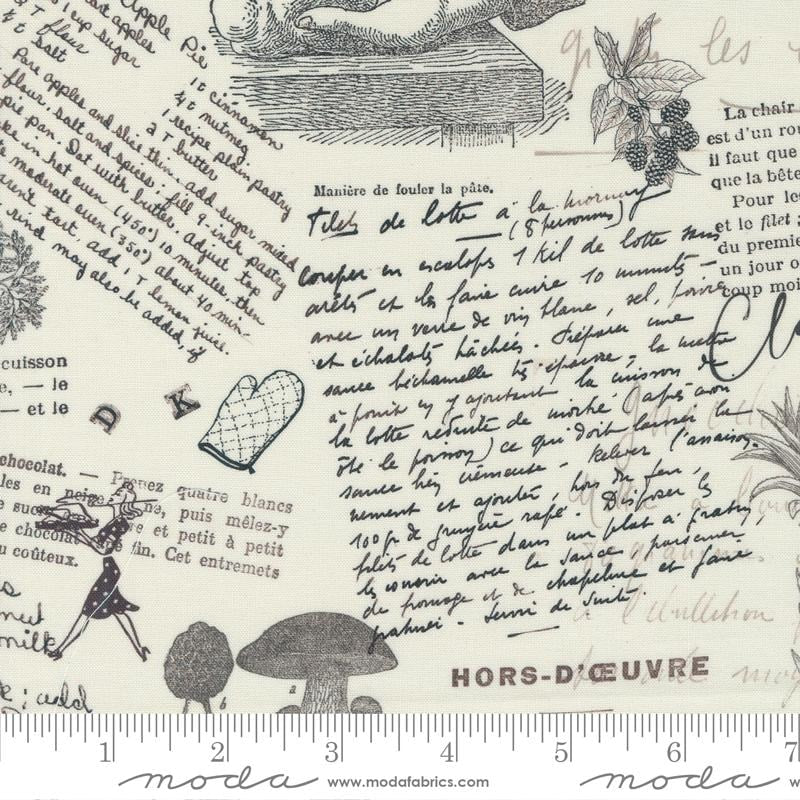 Apple Pie
apples
1 cup sugar
T flour
t salt
1 t cinnamon
1/4 t nutmeg
2 T butter
1 recipe plain pastry
Pare apples and slice thin. add sugar mixed
flour, salt and spices; fill 9-inch pastry
pie pan. Dot with butter. adjust top
in hot oven (450°) 10 minutes, then
moderate oven (350°) about 40 min-
tart, add 1 T lemon juice.
rind may also be added, if
Manière de fouler la pâte.
Filets de lotte à la mornay
(8 personnes)
couper en escalops 1 Kil de lotte sans
arêts et les faire cuire 10 minuts
avec un verre de vin blanc, sel, poivre
et échalots hâchées. Préparer une
sauce béchamelle très épaisse; la mettre
à point en y ajoutant la cuisson de
la lotte réduite de moitié (après avoir
ôté le poisson) ce qui doit laisser la
sauce très crémeuse. Relever l'assaison-
nement et ajouter, hors du feu,
100 gr de gruyère rapé. Disposer les
filets de lotte dans un plat à gratin,
les couvrir avec la sauce, parsemer
de fromage et de chapelure et faire
gratiner. Servir de suite.
les
La chair
est d'un rou
il faut que
que la bête
Pour les
et le filet ;
du premie
un jour o
coup moi
cuisson
e, — le
— et le
D K
chocolat. — Prenez quatre blancs
les en neige, puis mêlez-y
et petit à petit
chocolat fin. Cet entremets
u coûteux.
milk
add
a
b
l'ébullition
HORS-D'ŒUVRE
1 2 3 4 5 6 7
moda www.modafabrics.com moda www.modafabrics.com